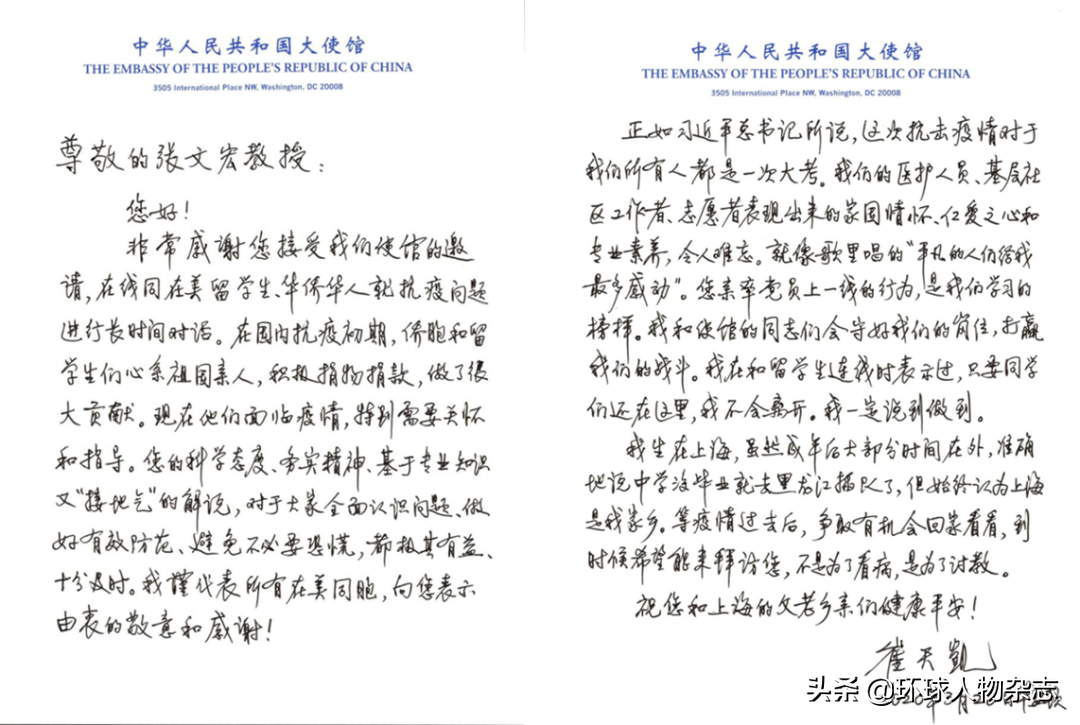 中华人民共和国大使馆
THE EMBASSY OF THE PEOPLE'S REPUBLIC OF CHINA
3505 International Place NW, Washington, DC 20008
尊敬的张文宏教授：
您好！
非常感谢您接受我们使馆的邀
请，在线同在美留学生、华侨华人就抗疫问题
进行长时间对话。在国内抗疫初期，侨胞和留
学生们心系祖国亲人，积极捐物捐款，做了很
大贡献。现在他们面临疫情，特别需要关怀
和指导。您的科学态度、务实精神、基于专业知识
又"接地气"的解说，对于大家全面认识问题、做
好有效防范、避免不必要恐慌，都极其有益、
十分及时。我谨代表所有在美同胞，向您表示
由衷的敬意和感谢！
中华人民共和国大使馆
THE EMBASSY OF THE PEOPLE'S REPUBLIC OF CHINA
3505 International Place NW, Washington, DC 20008
正如习近平总书记所说，这次抗击疫情对于
我们所有人都是一次大考。我们的医护人员、基层社
区工作者、志愿者表现出来的家国情怀、仁爱之心和
专业素养，令人难忘。就像歌里唱的"平凡的人们给我
最多感动"。您亲率党员上一线的行为，是我们学习的
榜样。我和使馆的同志们会守好我们的岗位，打赢
我们的战斗。我在和留学生连线时表示过，只要同学
们还在这里，我不会离开。我一定说到做到。
我生在上海，虽然成年后大部分时间在外，准确
地说中学没毕业就去黑龙江插队了，但始终认为上海
是我家乡。等疫情过去后，争取有机会回家看看，到
时候希望能来拜访您，不是为了看病，是为了讨教。
祝您和上海的父老乡亲们健康平安！
崔天凯
2020年3月
头条 @环球人物杂志